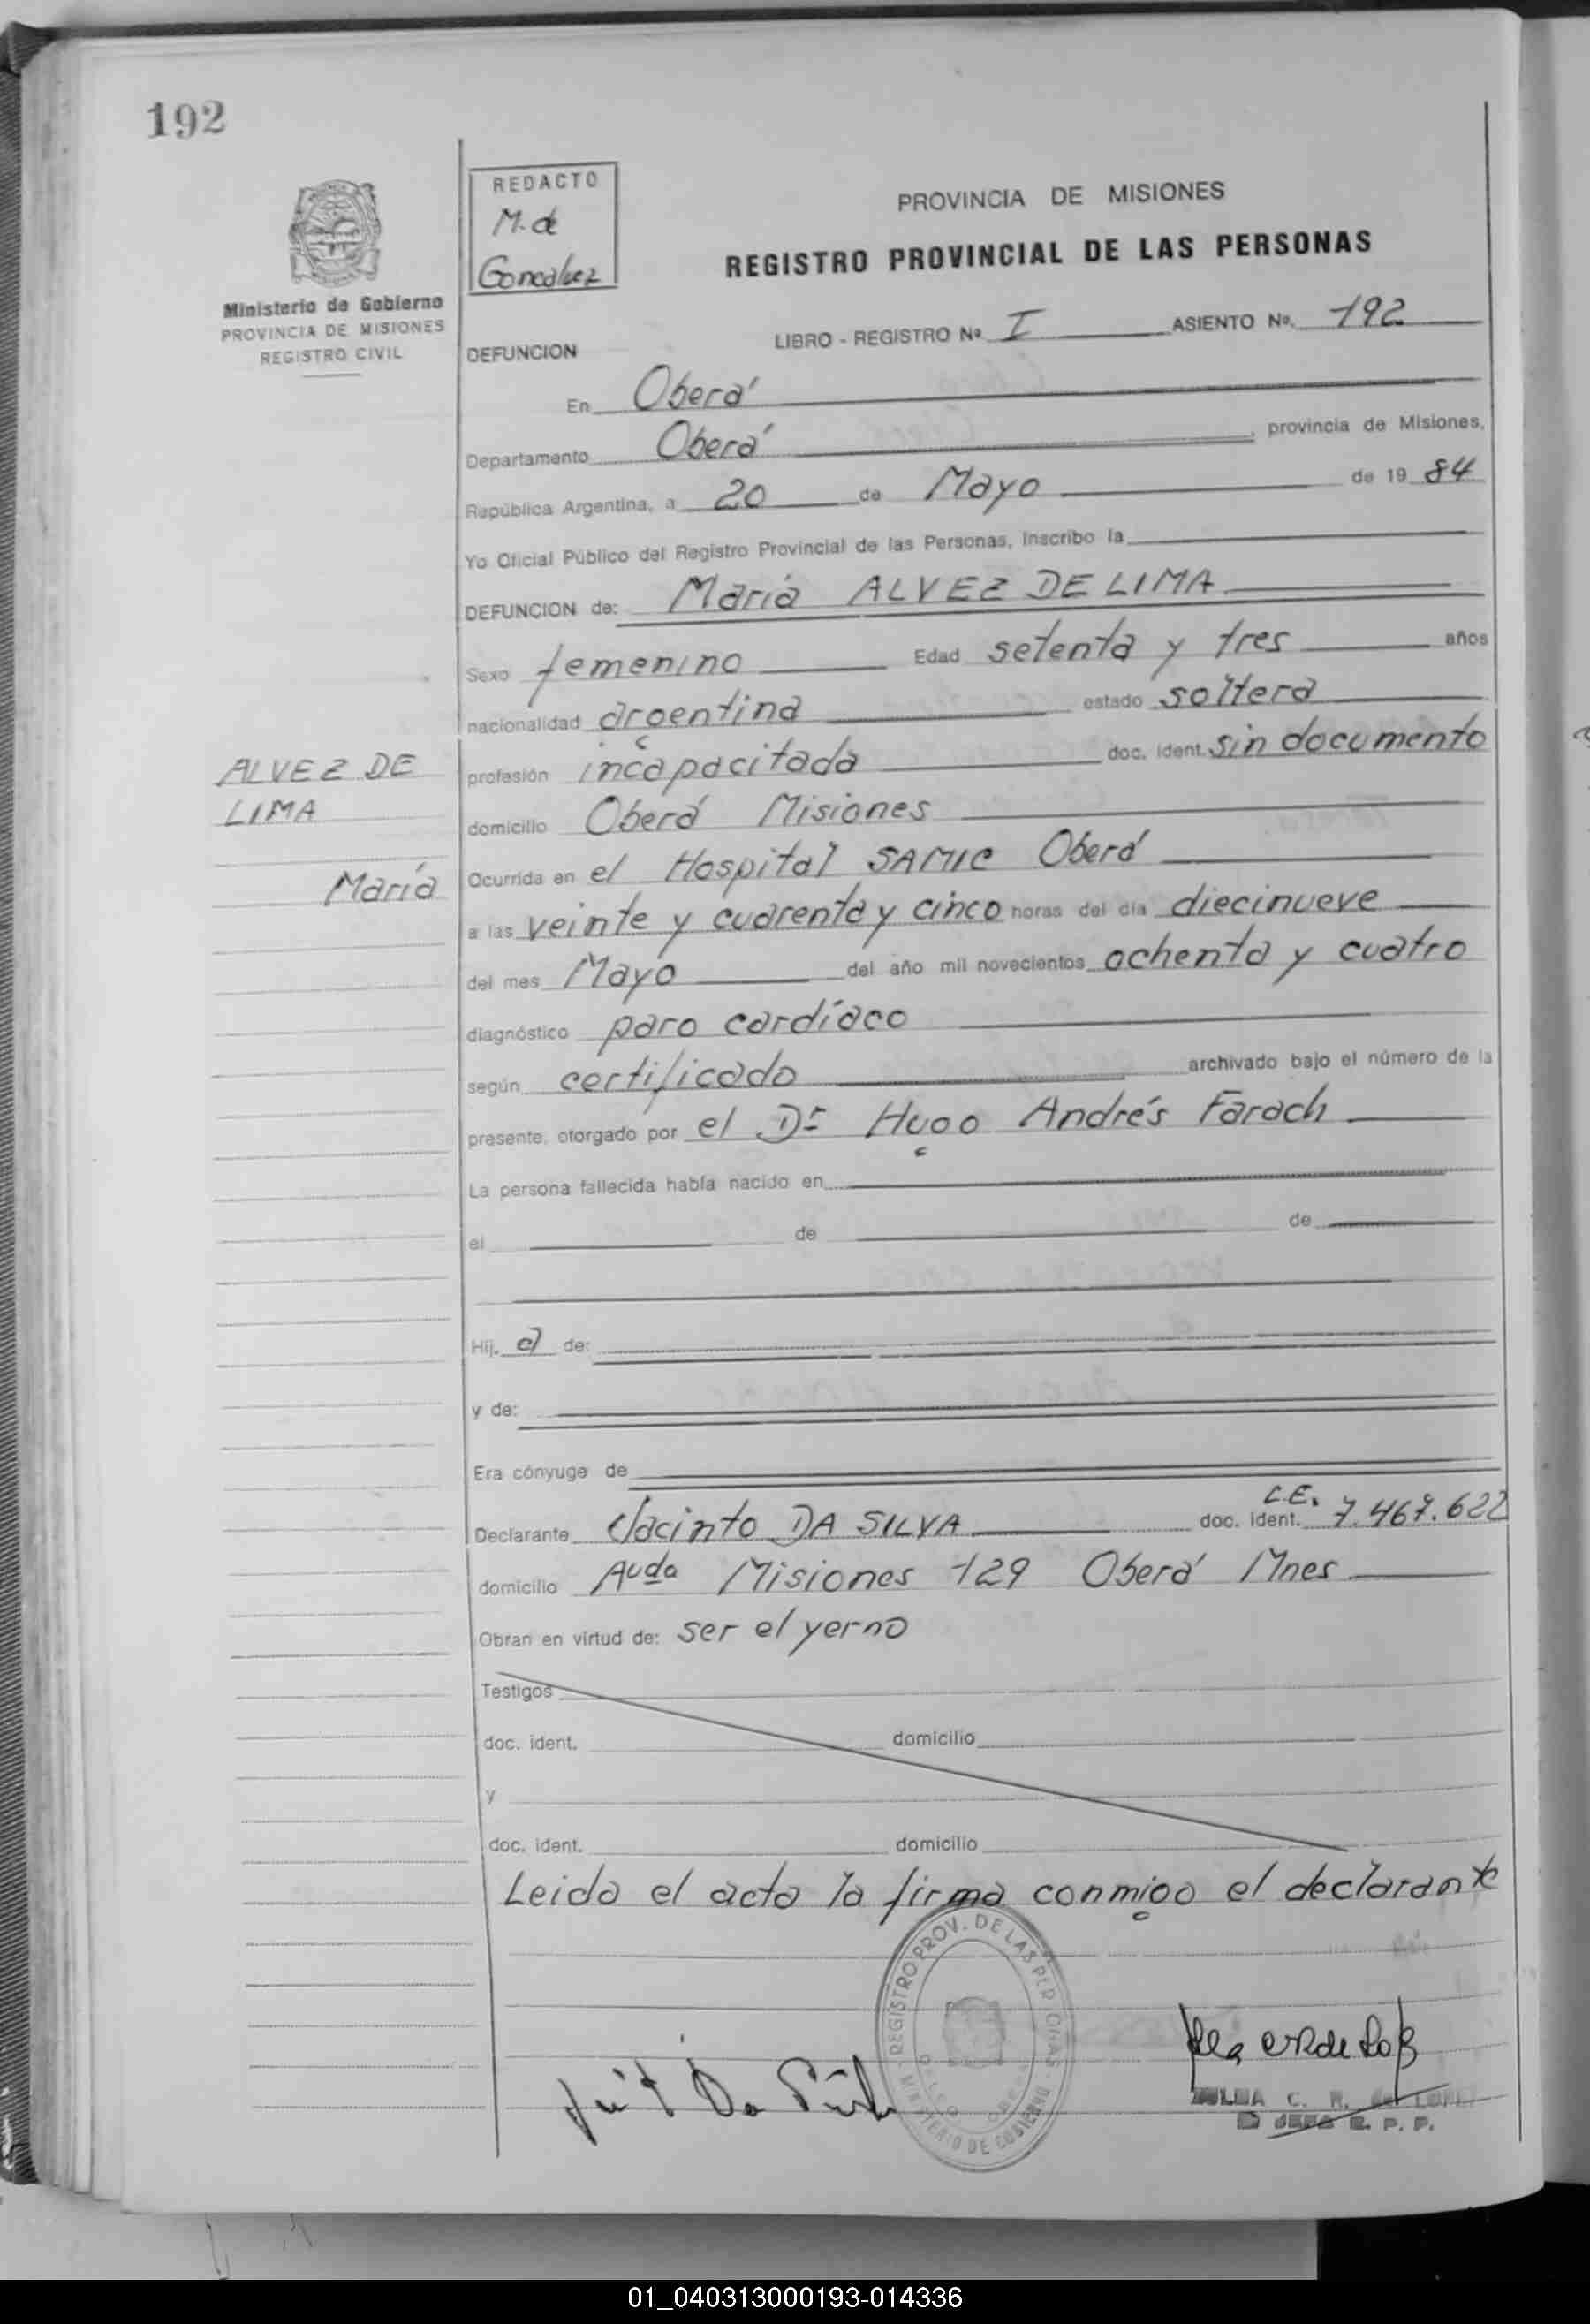 192
REDACTO
M. de
Goncalvez
Ministerio de Gobierno
PROVINCIA DE MISIONES
REGISTRO CIVIL
PROVINCIA DE MISIONES
REGISTRO PROVINCIAL DE LAS PERSONAS
LIBRO - REGISTRO Nº I ASIENTO Nº. 192
DEFUNCION
En Oberá
Departamento Oberá, provincia de Misiones,
República Argentina, a 20 de Mayo de 19 84
Yo Oficial Público del Registro Provincial de las Personas, inscribo la
DEFUNCION de: María ALVEZ DE LIMA
Sexo femenino Edad setenta y tres años
nacionalidad argentina estado soltera
ALVEZ DE
LIMA
María
profesión incapacitada doc. ident. sin documento
domicilio Oberá Misiones
Ocurrida en el Hospital SAMIC Oberá
a las veinte y cuarenta y cinco horas del día diecinueve
del mes Mayo del año mil novecientos ochenta y cuatro
diagnóstico paro cardíaco
según certificado archivado bajo el número de la
presente, otorgado por el Dr Hugo Andrés Farach
La persona fallecida había nacido en
el de de
Hij. a de:
y de:
Era cónyuge de
Declarante Jacinto DA SILVA doc. ident. C.E. 7.467.622
domicilio Avda Misiones 129 Oberá Mnes
Obran en virtud de: ser el yerno
Testigos
doc. ident. domicilio
y
doc. ident. domicilio
Leida el acta la firma conmigo el declarante
REGISTRO PROV. DE LAS PERSONAS
MINISTERIO DE GOBIERNO
C. R. de LOPEZ
JEFA R. P. P.
01_040313000193-014336